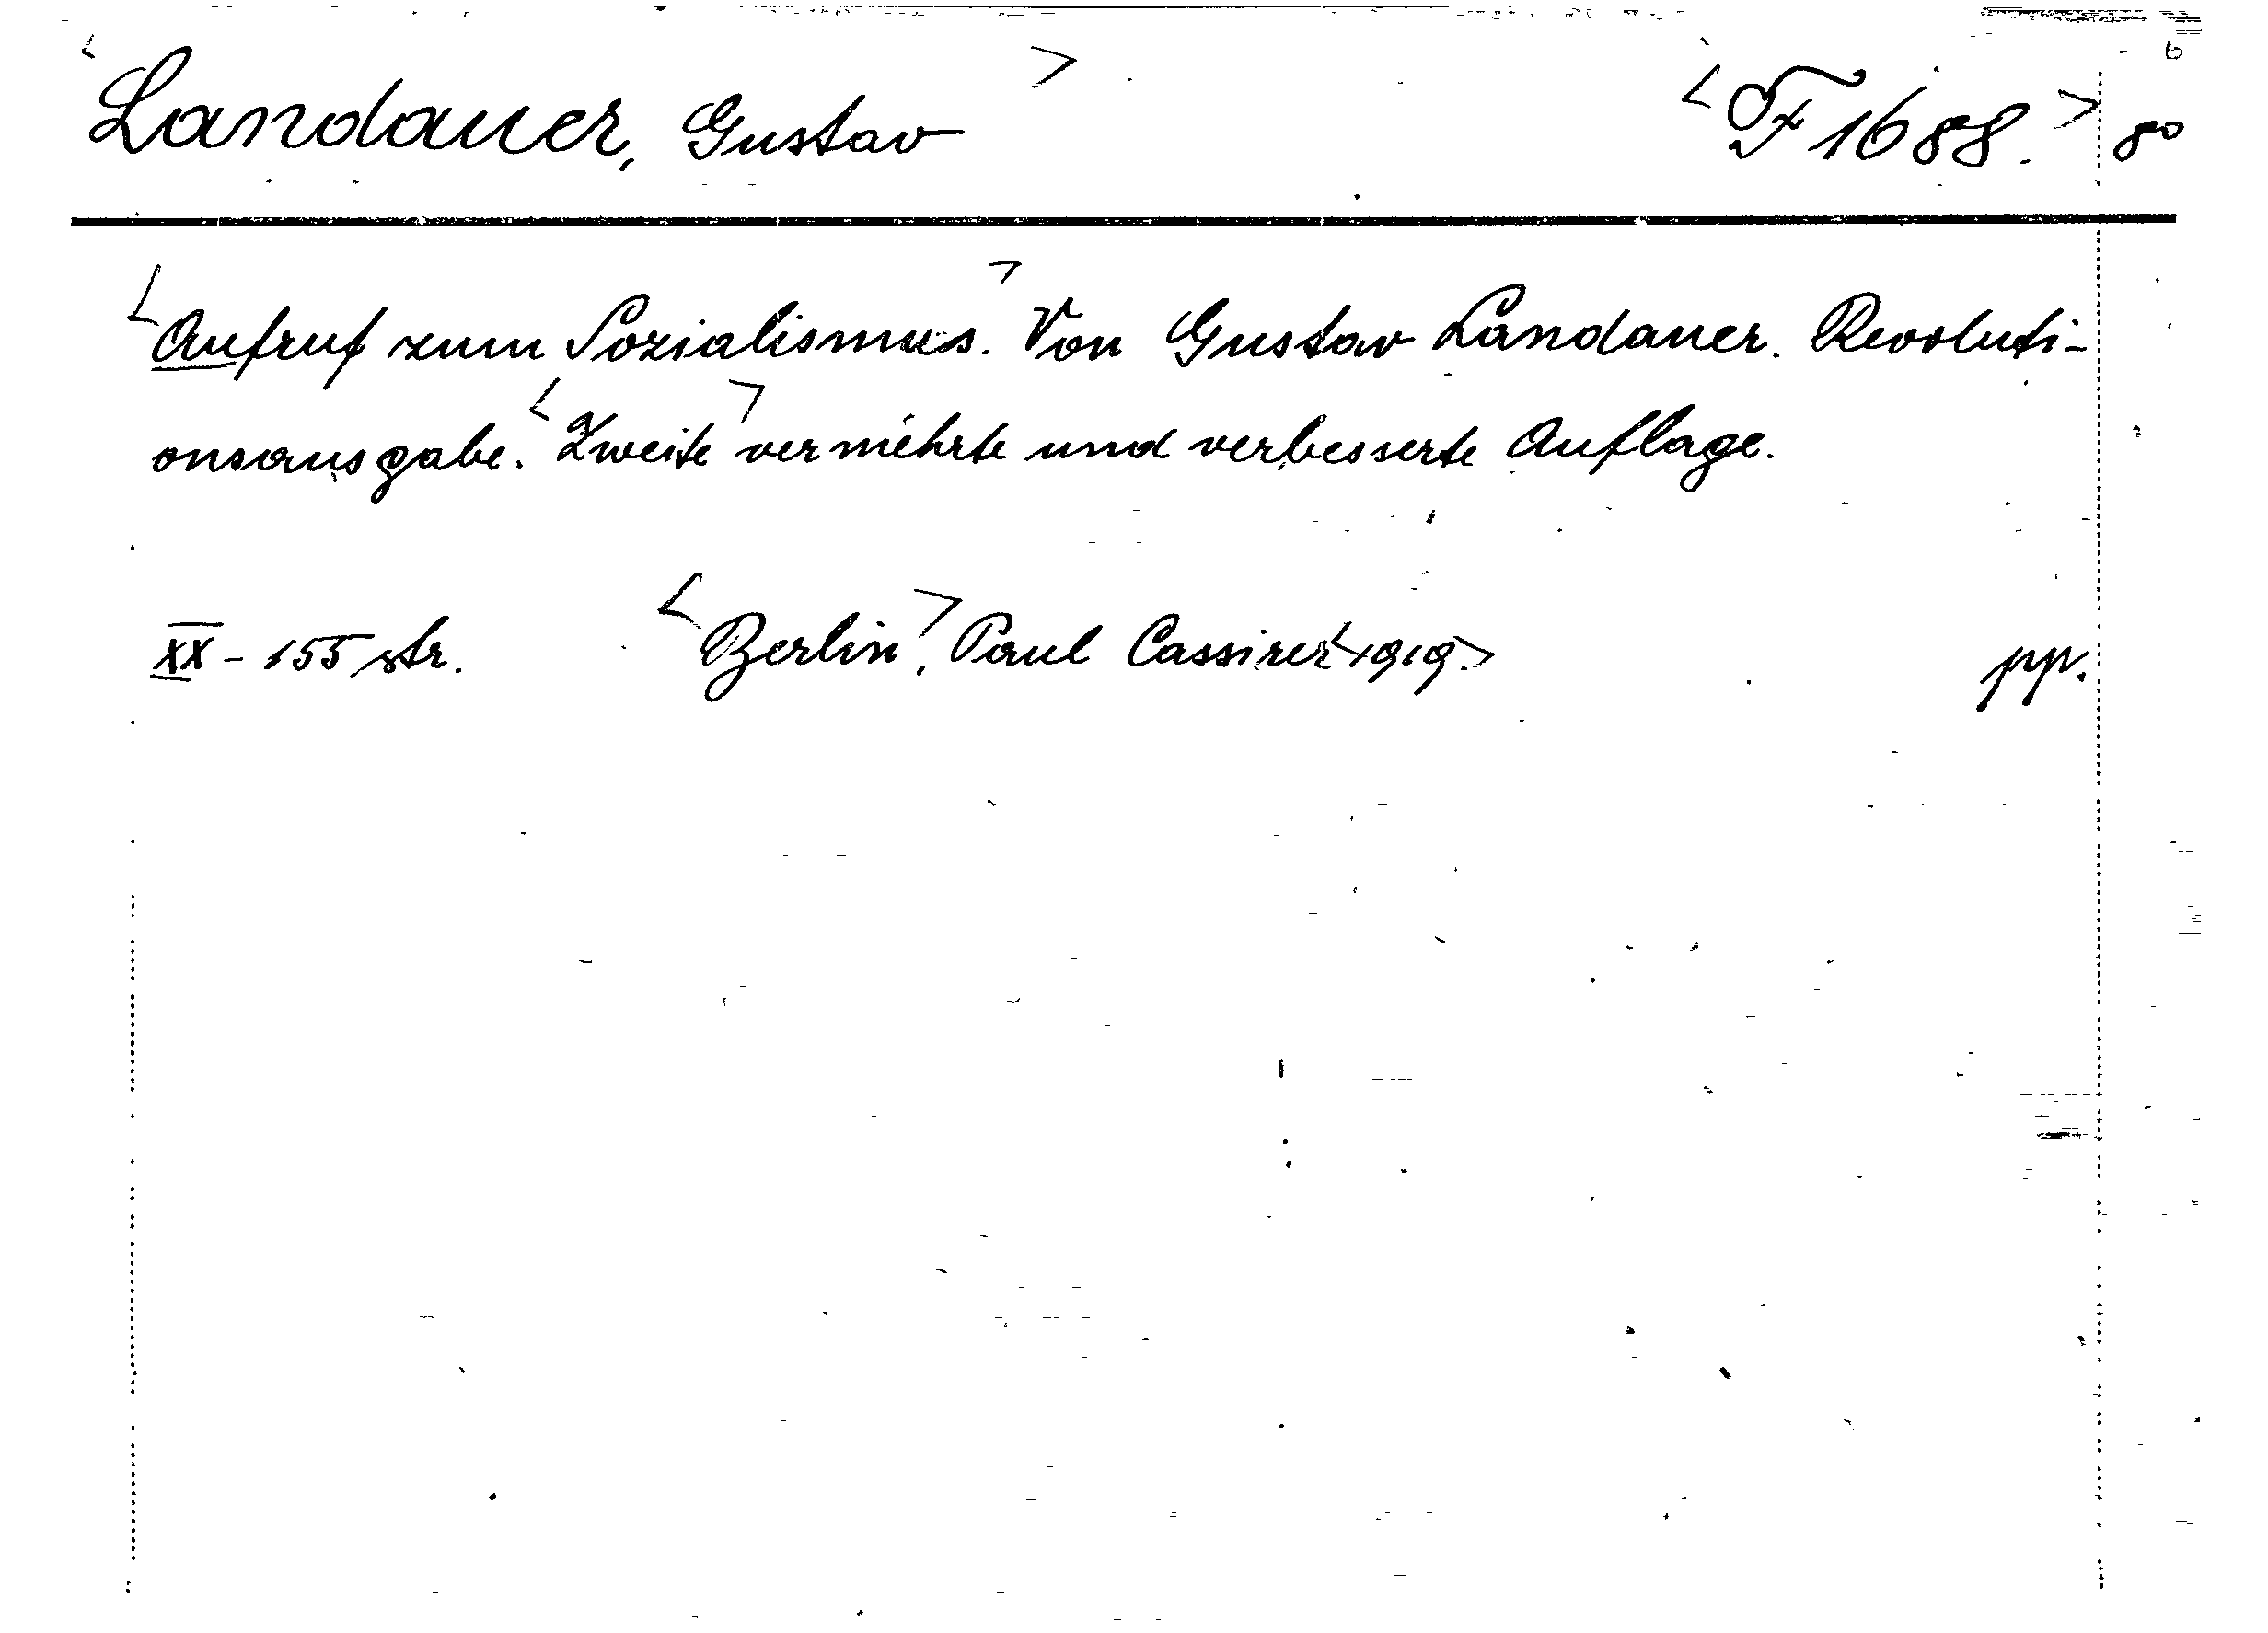 <Landauer, Gustav> <F 1688.> 8°
<Aufruf zum Sozialismus.> Von Gustav Landauer. Revoluti-
onsausgabe. <Zweite> vermehrte und verbesserte Auflage.
XX - 155 str. <Berlin>, Paul Cassirer <1919.> pp.